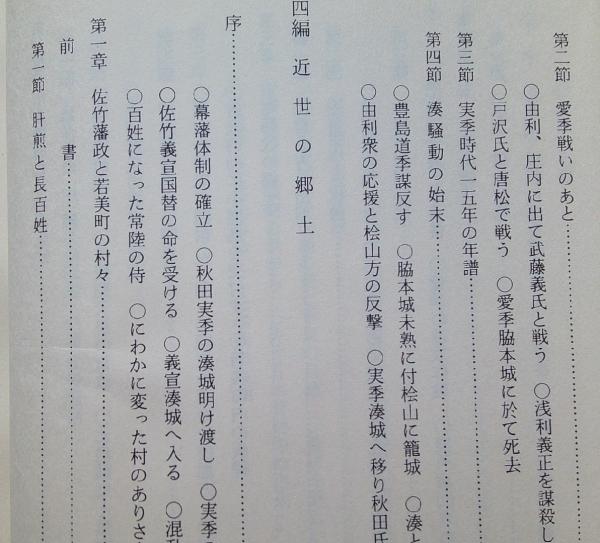 第二節　愛季戦いのあと……………
〇由利、庄内に出て武藤義氏と戦う　〇浅利義正を謀殺し
〇戸沢氏と唐松で戦う　〇愛季脇本城に於て死去
第三節　実季時代一五年の年譜……………
第四節　湊騒動の始末……………
〇豊島道季謀反す　〇脇本城未熟に付桧山に籠城　〇湊と
〇由利衆の応援と桧山方の反撃　〇実季湊城へ移り秋田氏
四編　近世の郷土
序……………
〇幕藩体制の確立　〇秋田実季の湊城明け渡し　〇実季の
〇佐竹義宣国替の命を受ける　〇義宣湊城へ入る　〇混
〇百姓になった常陸の侍　〇にわかに変った村のありさ
第一章　佐竹藩政と若美町の村々……………
前書……………
第一節　肝煎と長百姓……………